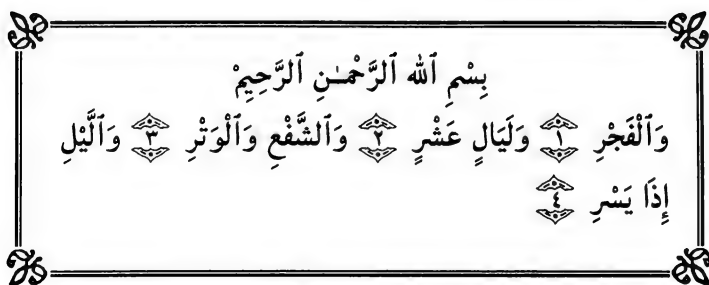 بِسْمِ ٱللَّه ٱلرَّحْمَـٰنِ ٱلرَّحِيمْ
وَٱلْفَجْرِ ١ وَلَيَالٍ عَشْرٍ ٢ وَٱلشَّفْعِ وَٱلْوَتْرِ ٣ وَٱلَّيْلِ
إِذَا يَسْرِ ٤